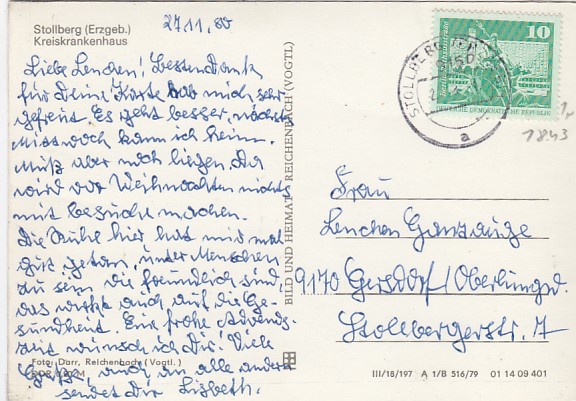 27.11.80
Stollberg (Erzgeb.)
Kreiskrankenhaus
Liebe Lenchen! Besten Dank
für Deine Karte hab mich sehr
gefreut. Es geht besser, nächste
Mittwoch kann ich heim.
Muß aber noch liegen. Da
wird vor Weihnachten nichts
mit besuche machen.
Die Ruhe hier hat mir mal
gut getan, unter Menschen
zu sein die freundlich sind,
das wirkt auch auf die Ge-
sundheit. Eine frohe Advends-
zeit wünsch ich Dir. Viele
Grüße, auch an alle andern
sendet Dir Lisbeth.
Foto: Darr, Reichenbach (Vogtl.)
BILD UND HEIMAT REICHENBACH (VOGTL)
10
DEUTSCHE DEMOKRATISCHE REPUBLIK
STOLLBERG
a
1843
Frau
Lenchen Ganzauge
9170 Gersdorf/Oberlungw.
Stollbergerstr. 7
III/18/197 A 1/B 516/79 01 14 09 401